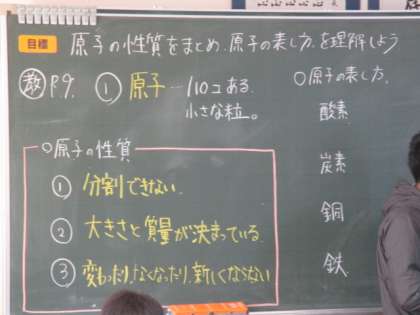 目標
原子の性質をまとめ、原子の表し方を理解しよう
教 P9. ① 原子 … 110コある。
小さな粒。
○原子の性質
① 分割できない。
② 大きさと質量が決まっている。
③ 変わったり、なくなったり、新しくならない
○原子の表し方。
酸素
炭素
銅
鉄